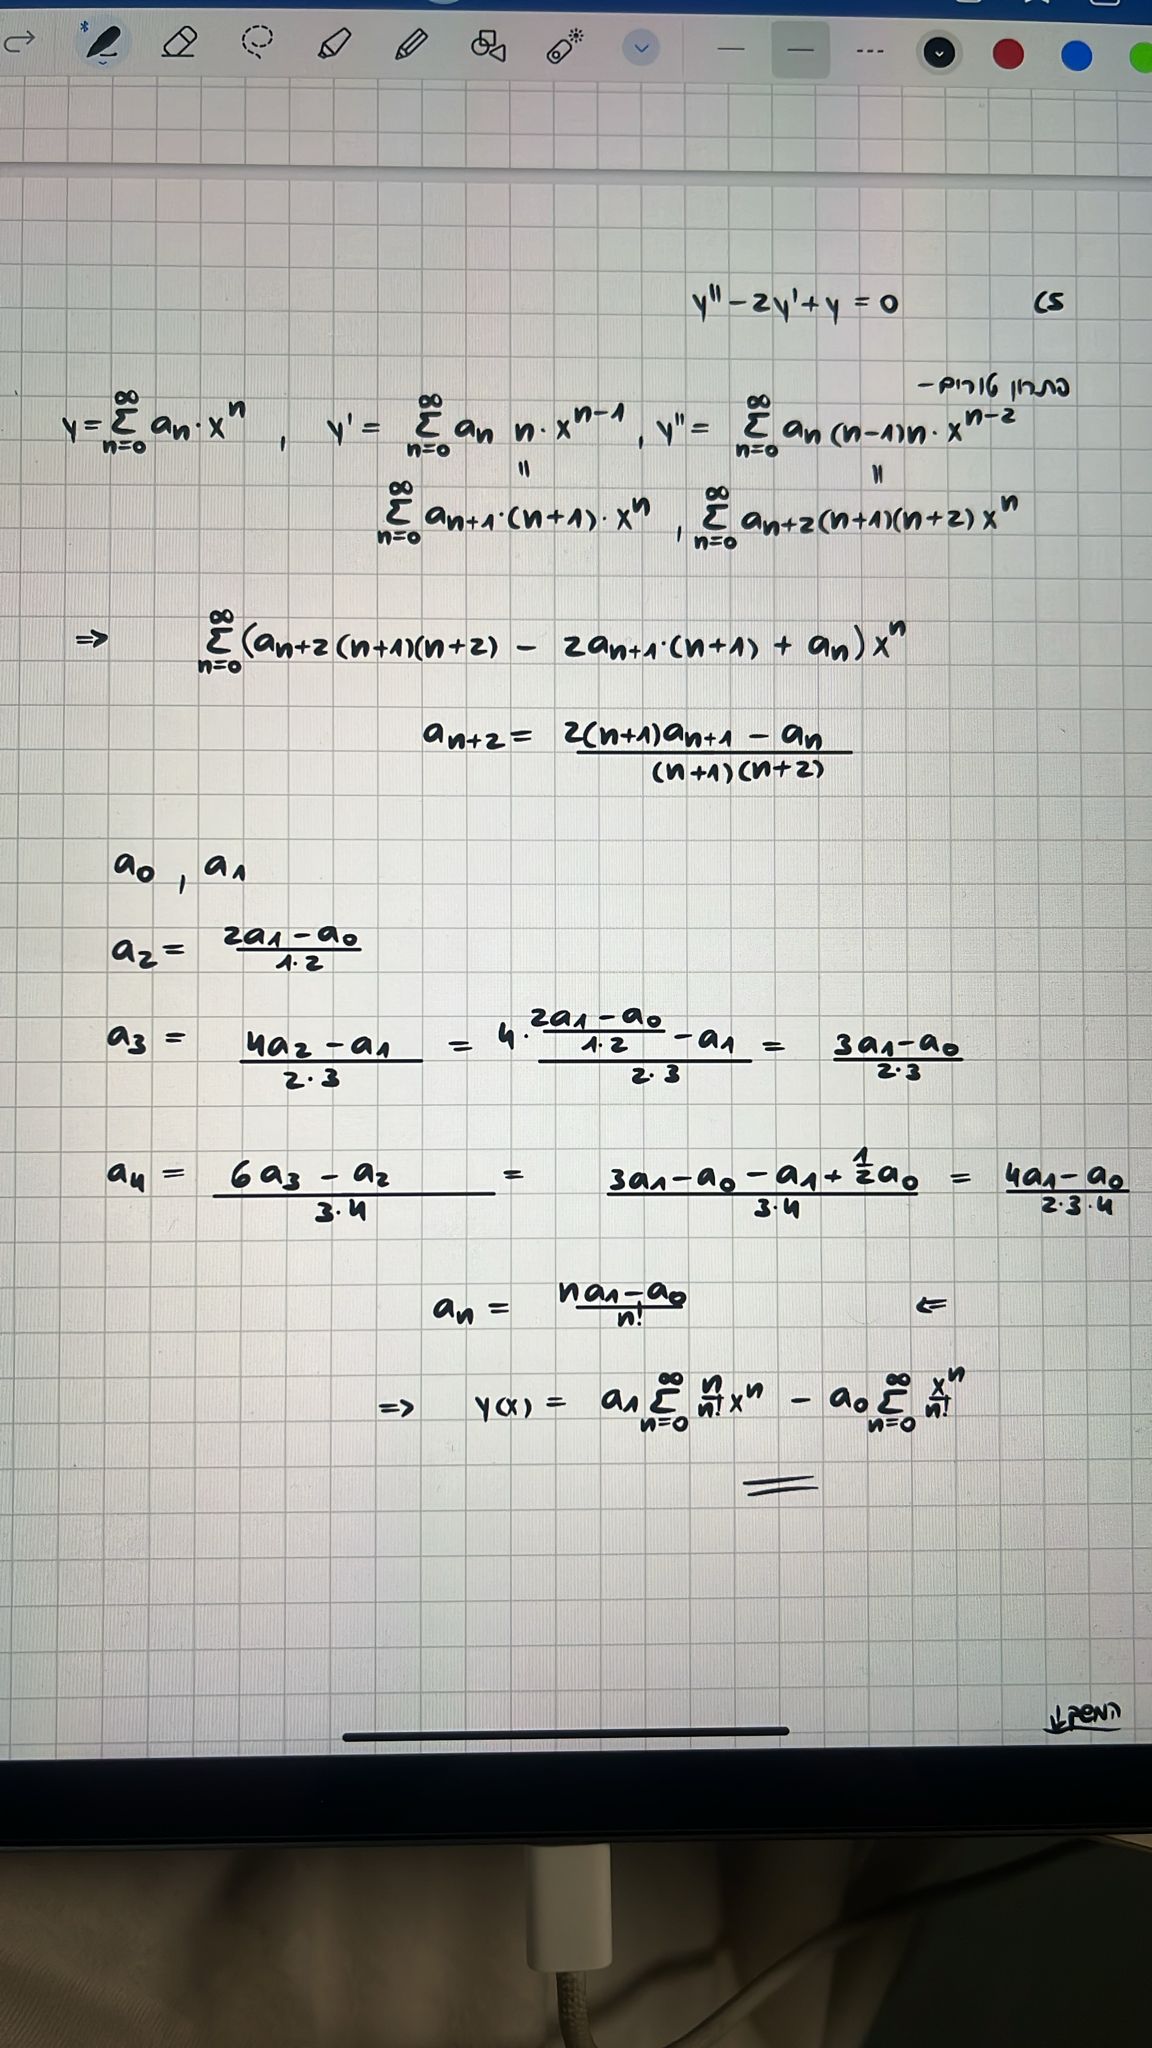 y'' - 2y' + y = 0 (5
פתרון טורים-
y = ∑_{n=0}^{∞} a_n · x^n , y' = ∑_{n=0}^{∞} a_n n · x^{n-1} , y'' = ∑_{n=0}^{∞} a_n (n-1)n · x^{n-2}
= =
∑_{n=0}^{∞} a_{n+1} · (n+1) · x^n , ∑_{n=0}^{∞} a_{n+2} (n+1)(n+2) x^n
⇒ ∑_{n=0}^{∞} (a_{n+2} (n+1)(n+2) - 2a_{n+1} · (n+1) + a_n) x^n
a_{n+2} = \frac{2(n+1)a_{n+1} - a_n}{(n+1)(n+2)}
a_0 , a_1
a_2 = \frac{2a_1 - a_0}{1·2}
a_3 = \frac{4a_2 - a_1}{2·3} = \frac{4 · \frac{2a_1 - a_0}{1·2} - a_1}{2·3} = \frac{3a_1 - a_0}{2·3}
a_4 = \frac{6a_3 - a_2}{3·4} = \frac{3a_1 - a_0 - a_1 + \frac{1}{2}a_0}{3·4} = \frac{4a_1 - a_0}{2·3·4}
a_n = \frac{na_1 - a_0}{n!} ⇐
⇒ y(x) = a_1 ∑_{n=0}^{∞} \frac{n}{n!} x^n - a_0 ∑_{n=0}^{∞} \frac{x^n}{n!}
המשך ↓